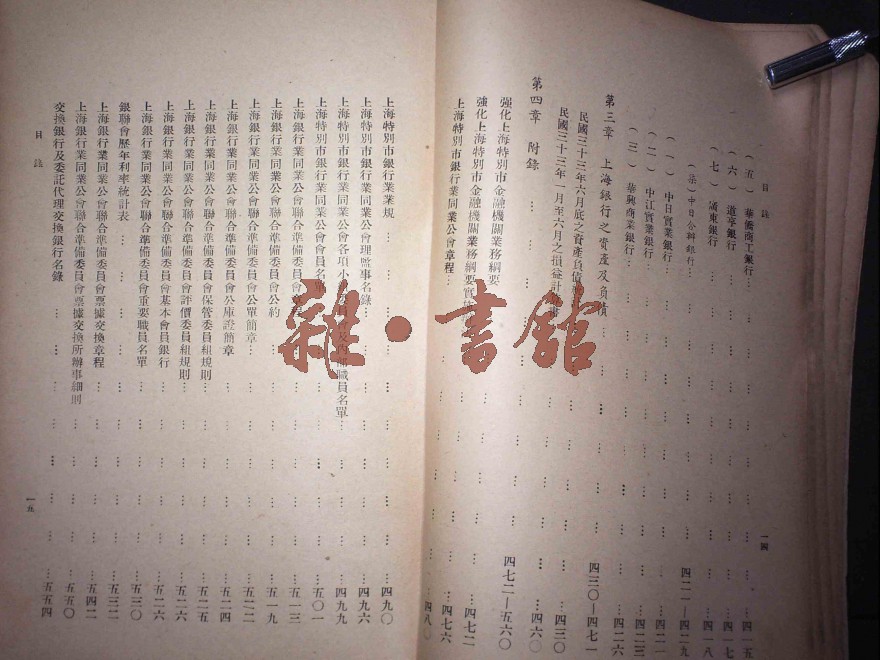 目錄
一四
(五)華僑商工銀行……四一五
(六)道亨銀行……四一七
(七)浦東銀行……四一八
(柒)中日合辦銀行……四二一—四二九
(一)中日實業銀行……四二一
(二)中江實業銀行……四二三
(三)華興商業銀行……四二六
第三章 上海銀行之資產及負債……四三〇—四七一
民國三十三年六月底之資產負債……四三〇
民國三十三年一月至六月之損益計……四六〇
第四章 附錄……四七二—五六〇
強化上海特別市金融機關業務綱要……四七二
強化上海特別市金融機關業務綱要實施……四七六
上海特別市銀行業同業公會章程……四八〇
上海特別市銀行業業規……四九〇
上海特別市銀行業同業公會理監事名錄……四九六
上海特別市銀行業同業公會各項小委員會及內部職員名單……四九九
上海特別市銀行業同業公會會員名單……五〇一
上海銀行業同業公會聯合準備委員會章程……五一三
上海銀行業同業公會聯合準備委員會公約……五一九
上海銀行業同業公會聯合準備委員會公單簡章……五二二
上海銀行業同業公會聯合準備委員會公庫證簡章……五二四
上海銀行業同業公會聯合準備委員會保管委員組規則……五二五
上海銀行業同業公會聯合準備委員會評價委員組規則……五二六
上海銀行業同業公會聯合準備委員會基本會員銀行……五二六
上海銀行業同業公會聯合準備委員會重要職員名單……五三〇
銀聯會歷年利率統計表……五三二
上海銀行業同業公會聯合準備委員會票據交換章程……五四二
上海銀行業同業公會聯合準備委員會票據交換所辦事細則……五五〇
交換銀行及委託代理交換銀行名錄……五五四
目錄
一五
雜·書館